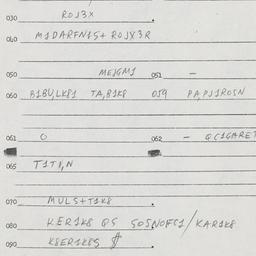 030 ROJ3X
040 M1DARFN1S+ ROJX3R
050 MEJGM1 051 –
060 B1BU,LK81 TA,B1K8 059 PA,PJ1ROSN
061 O 062 – QC1GARET
065 T1T8,N
070 MULS+T1K8
080 KER1K8 QS SOSNOFC1/KAR1K8
090 K8ER1K8S